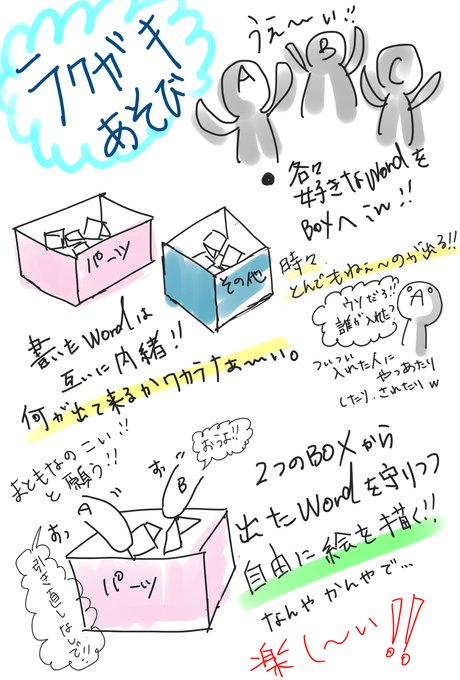 ラクガキ
あそび
うぇ〜い!!
A
B
C
● 各々
好きなWordを
BOXへin!!
パーツ
その他
書いたWordは
互いに内緒!!
何が出て来るかワカラナぁ〜い。
時々
とんでもねぇ〜のが出る!!
ウソだろ!?
誰が入れた?
A
ついつい
入れた人に
やつあたり
したり、されたりw
まともなのこい!!
と願う!!
おっ
A
おぉ
B
おうよ!!
引き直しなしで!!
パーツ
2つのBOXから
出たWordを守りつつ
自由に絵を描く!!
なんやかんやで…
楽し〜い!!